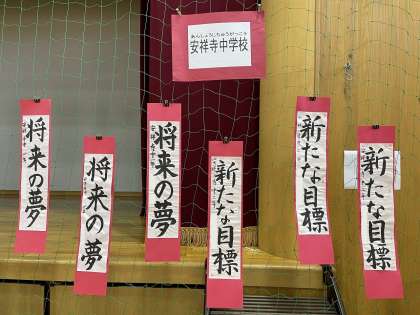 あんしょうじちゅうがっこう
安祥寺中学校
将来の夢
将来の夢
将来の夢
新たな目標
新たな目標
新たな目標